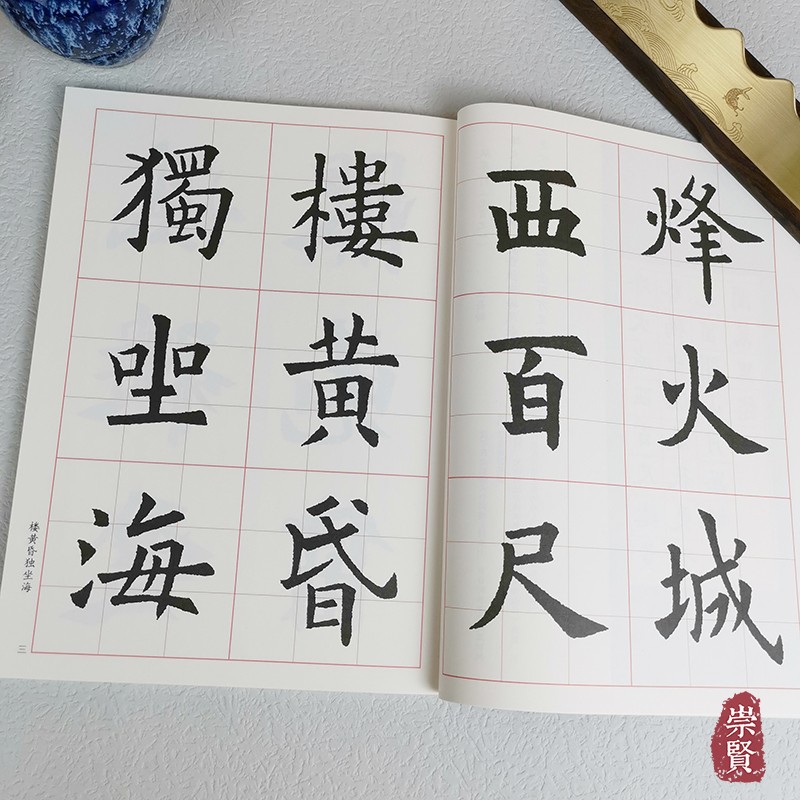 烽火城
西百尺
樓黃昏
獨坐海
楼黄昏独坐海
三
崇賢